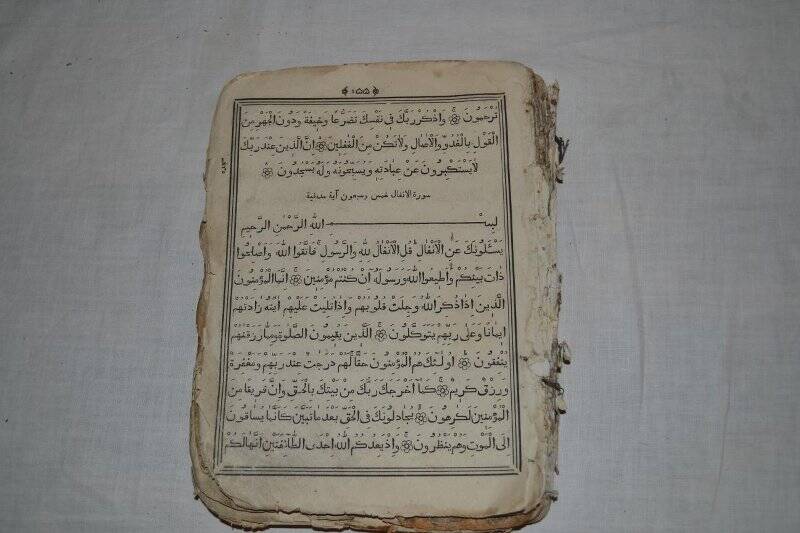 ﴿ ١٥٥ ﴾
تُرْحَمُونَ ۞ وَاذْكُرْ رَبَّكَ فِي نَفْسِكَ تَضَرُّعًا وَخِيفَةً وَدُونَ الْجَهْرِ مِنَ
الْقَوْلِ بِالْغُدُوِّ وَالْآصَالِ وَلَا تَكُنْ مِنَ الْغَافِلِينَ ۞ اِنَّ الَّذِينَ عِنْدَ رَبِّكَ
لَا يَسْتَكْبِرُونَ عَنْ عِبَادَتِهِ وَيُسَبِّحُونَهُ وَلَهُ يَسْجُدُونَ ۞
سورة الانفال خمس وسبعون آية مدنية
بِسْمِ اللهِ الرَّحْمٰنِ الرَّحِيمِ
يَسْئَلُونَكَ عَنِ الْاَنْفَالِ قُلِ الْاَنْفَالُ لِلّٰهِ وَالرَّسُولِ فَاتَّقُوا اللهَ وَاَصْلِحُوا
ذَاتَ بَيْنِكُمْ وَاَطِيعُوا اللهَ وَرَسُولَهُ اِنْ كُنْتُمْ مُؤْمِنِينَ ۞ اِنَّمَا الْمُؤْمِنُونَ
الَّذِينَ اِذَا ذُكِرَ اللهُ وَجِلَتْ قُلُوبُهُمْ وَاِذَا تُلِيَتْ عَلَيْهِمْ اٰيَتُهُ زَادَتْهُمْ
اِيمَانًا وَعَلٰى رَبِّهِمْ يَتَوَكَّلُونَ ۞ الَّذِينَ يُقِيمُونَ الصَّلٰوةَ وَمِمَّا رَزَقْنٰهُمْ
يُنْفِقُونَ ۞ اُولٰئِكَ هُمُ الْمُؤْمِنُونَ حَقًّا لَهُمْ دَرَجٰتٌ عِنْدَ رَبِّهِمْ وَمَغْفِرَةٌ
وَرِزْقٌ كَرِيمٌ ۞ كَمَا اَخْرَجَكَ رَبُّكَ مِنْ بَيْتِكَ بِالْحَقِّ وَاِنَّ فَرِيقًا مِنَ
الْمُؤْمِنِينَ لَكٰرِهُونَ ۞ يُجَادِلُونَكَ فِي الْحَقِّ بَعْدَ مَا تَبَيَّنَ كَاَنَّمَا يُسَاقُونَ
اِلَى الْمَوْتِ وَهُمْ يَنْظُرُونَ ۞ وَاِذْ يَعِدُكُمُ اللهُ اِحْدَى الطَّائِفَتَيْنِ اَنَّهَا لَكُمْ